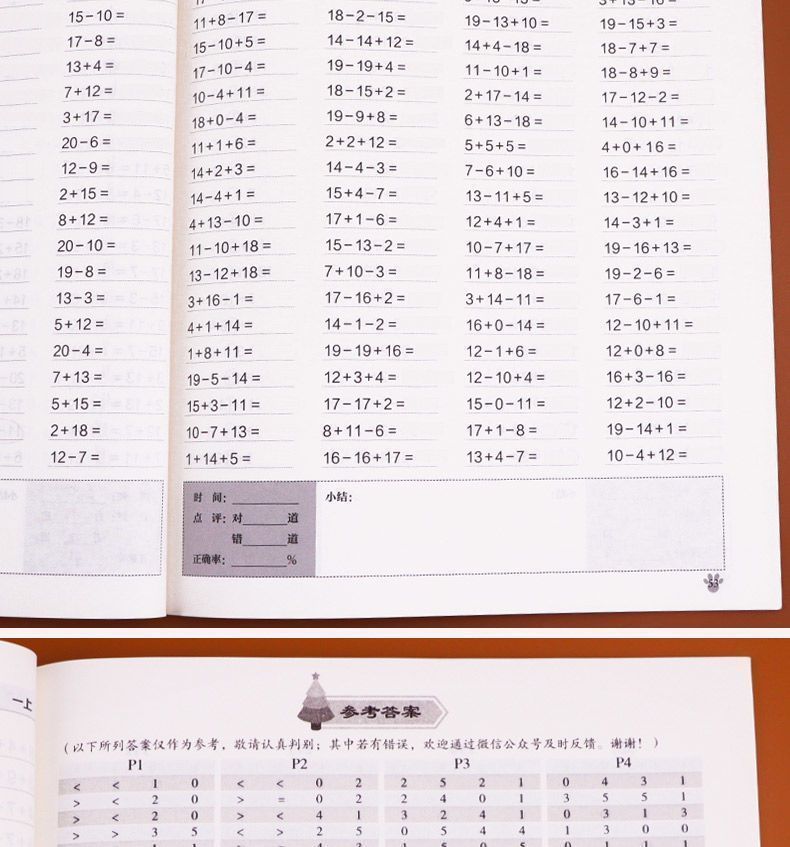 15－10＝
17－8＝
13＋4＝
7＋12＝
3＋17＝
20－6＝
12－9＝
2＋15＝
8＋12＝
20－10＝
19－8＝
13－3＝
5＋12＝
20－4＝
7＋13＝
5＋15＝
2＋18＝
12－7＝
11＋8－17＝ 18－2－15＝ 19－13＋10＝ 19－15＋3＝
15－10＋5＝ 14－14＋12＝ 14＋4－18＝ 18－7＋7＝
17－10－4＝ 19－19＋4＝ 11－10＋1＝ 18－8＋9＝
10－4＋11＝ 18－15＋2＝ 2＋17－14＝ 17－12－2＝
18＋0－4＝ 19－9＋8＝ 6＋13－18＝ 14－10＋11＝
11＋1＋6＝ 2＋2＋12＝ 5＋5＋5＝ 4＋0＋16＝
14＋2＋3＝ 14－4－3＝ 7－6＋10＝ 16－14＋16＝
14－4＋1＝ 15＋4－7＝ 13－11＋5＝ 13－12＋10＝
4＋13－10＝ 17＋1－6＝ 12＋4＋1＝ 14－3＋1＝
11－10＋18＝ 15－13－2＝ 10－7＋17＝ 19－16＋13＝
13－12＋18＝ 7＋10－3＝ 11＋8－18＝ 19－2－6＝
3＋16－1＝ 17－16＋2＝ 3＋14－11＝ 17－6－1＝
4＋1＋14＝ 14－1－2＝ 16＋0－14＝ 12－10＋11＝
1＋8＋11＝ 19－19＋16＝ 12－1＋6＝ 12＋0＋8＝
19－5－14＝ 12＋3＋4＝ 12－10＋4＝ 16＋3－16＝
15＋3－11＝ 17－17＋2＝ 15－0－11＝ 12＋2－10＝
10－7＋13＝ 8＋11－6＝ 17＋1－8＝ 19－14＋1＝
1＋14＋5＝ 16－16＋17＝ 13＋4－7＝ 10－4＋12＝
时 间：______ 小结：
点 评：对______道
错______道
正确率：______%
53
一上
参考答案
（以下所列答案仅作为参考，敬请认真判别；其中若有错误，欢迎通过微信公众号及时反馈。谢谢！）
P1 P2 P3 P4
< < 1 0 < < 0 2 2 5 2 1 0 4 3 1
> < 2 0 > = 0 2 2 4 0 1 3 5 5 1
> < 2 0 > < 4 1 3 2 4 1 0 3 1 3
> > 3 5 < > 2 5 0 5 4 4 1 3 0 0